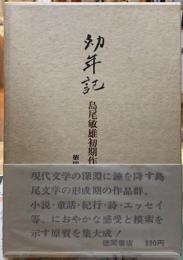 幼年記
島尾敏雄初期作
現代文学の深淵に錘を降す島
尾文学の形成期の作品群。
小説・童話・紀行・詩・エッセイ
等、においやかな感受と模索を
示す原質を集大成!
徳間書店 890円